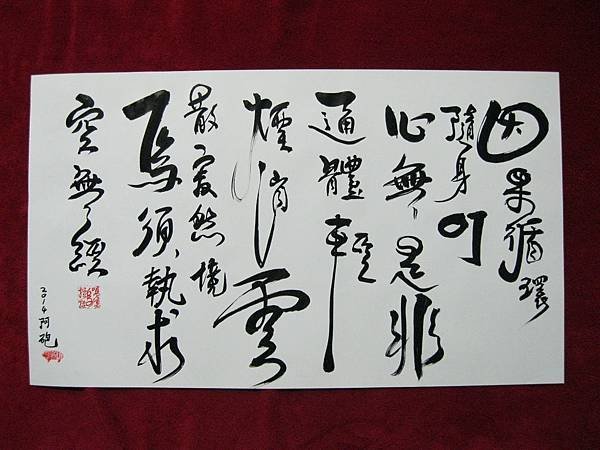 因果循環
隨身叮
心無是非
通體輕
煙消雲
散寂然境
焉須執求
空無
2014阿砲